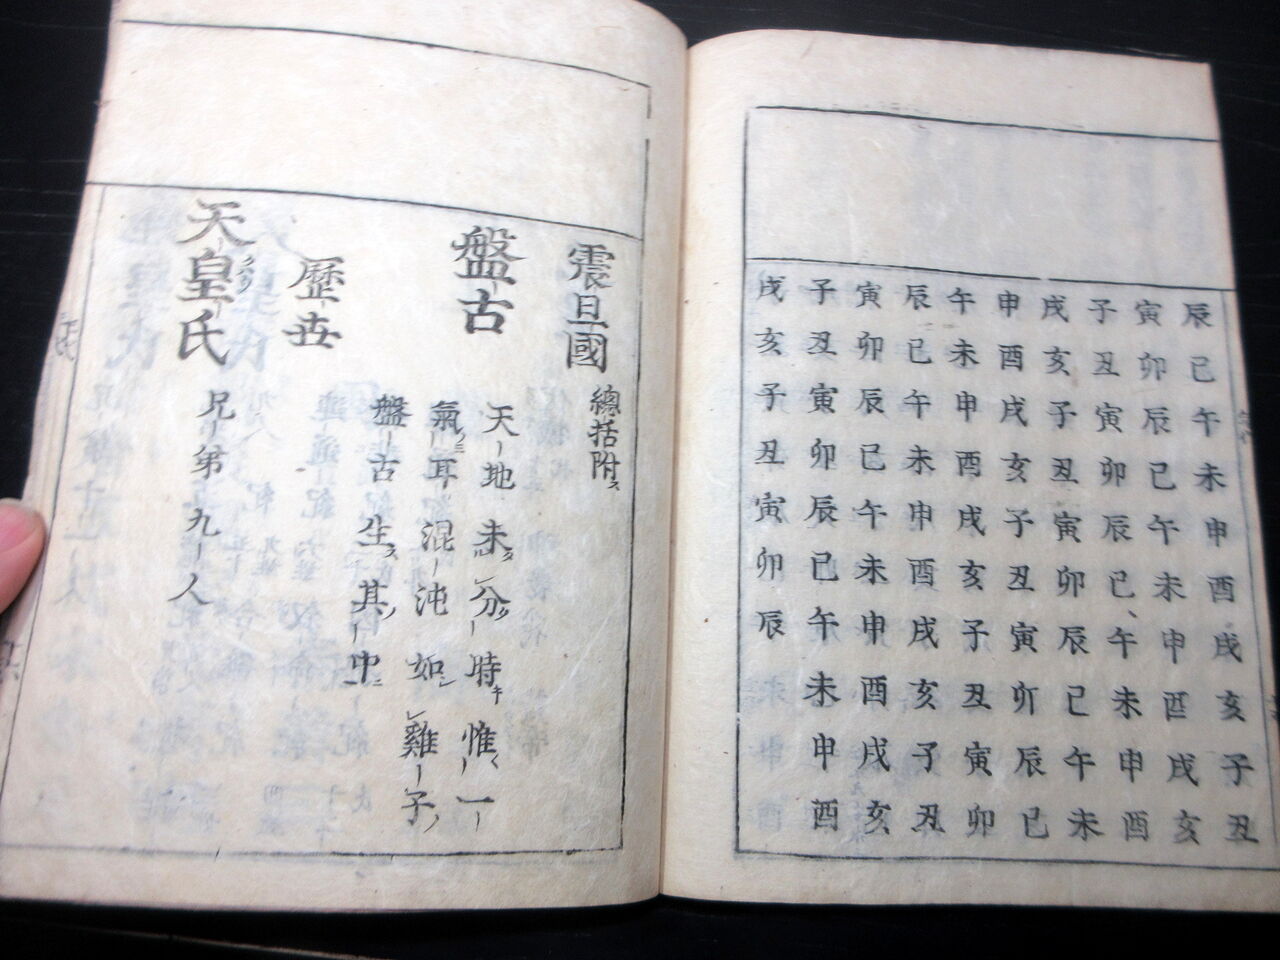 辰巳午未申酉戌亥子丑
寅卯辰巳午未申酉戌亥
子丑寅卯辰巳午未申酉
戌亥子丑寅卯辰巳午未
申酉戌亥子丑寅卯辰巳
午未申酉戌亥子丑寅卯
辰巳午未申酉戌亥子丑
寅卯辰巳午未申酉戌亥
子丑寅卯辰巳午未申酉
戌亥子丑寅卯辰
震旦國 總括附ス
盤古
天地未分時惟一
氣耳混沌如雞子
盤古生其中
歷世
天皇氏 兄弟九人